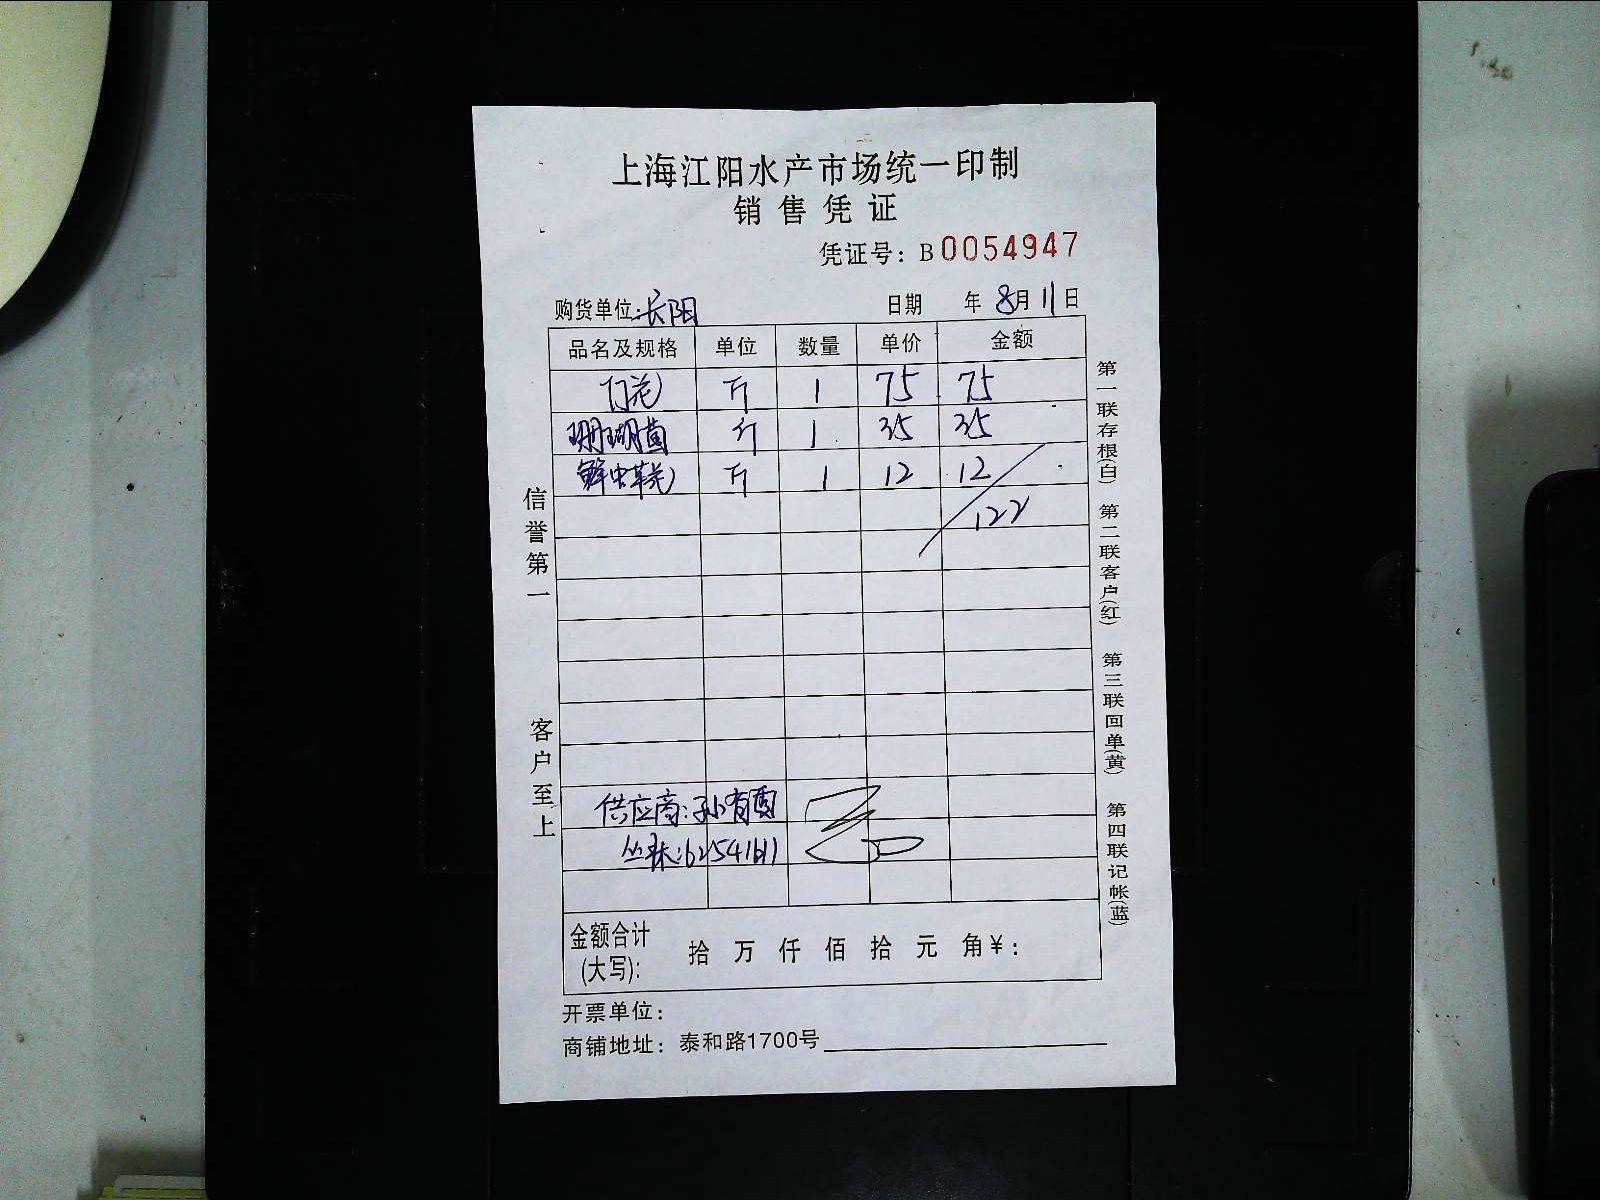 上海江阳水产市场统一印制
销售凭证
凭证号：B0054947
购货单位：长阳 日期 年 8月 11日
品名及规格 单位 数量 单价 金额
斤 1 75 75
珊瑚菌 斤 1 35 35
鲜虫草花 斤 1 12 12
122
供应商：孙有国
丛林：62541611
金额合计(大写)： 拾 万 仟 佰 拾 元 角 ¥：
开票单位：
商铺地址：泰和路1700号
信誉第一 客户至上
第一联存根(白) 第二联客户(红) 第三联回单(黄) 第四联记帐(蓝)